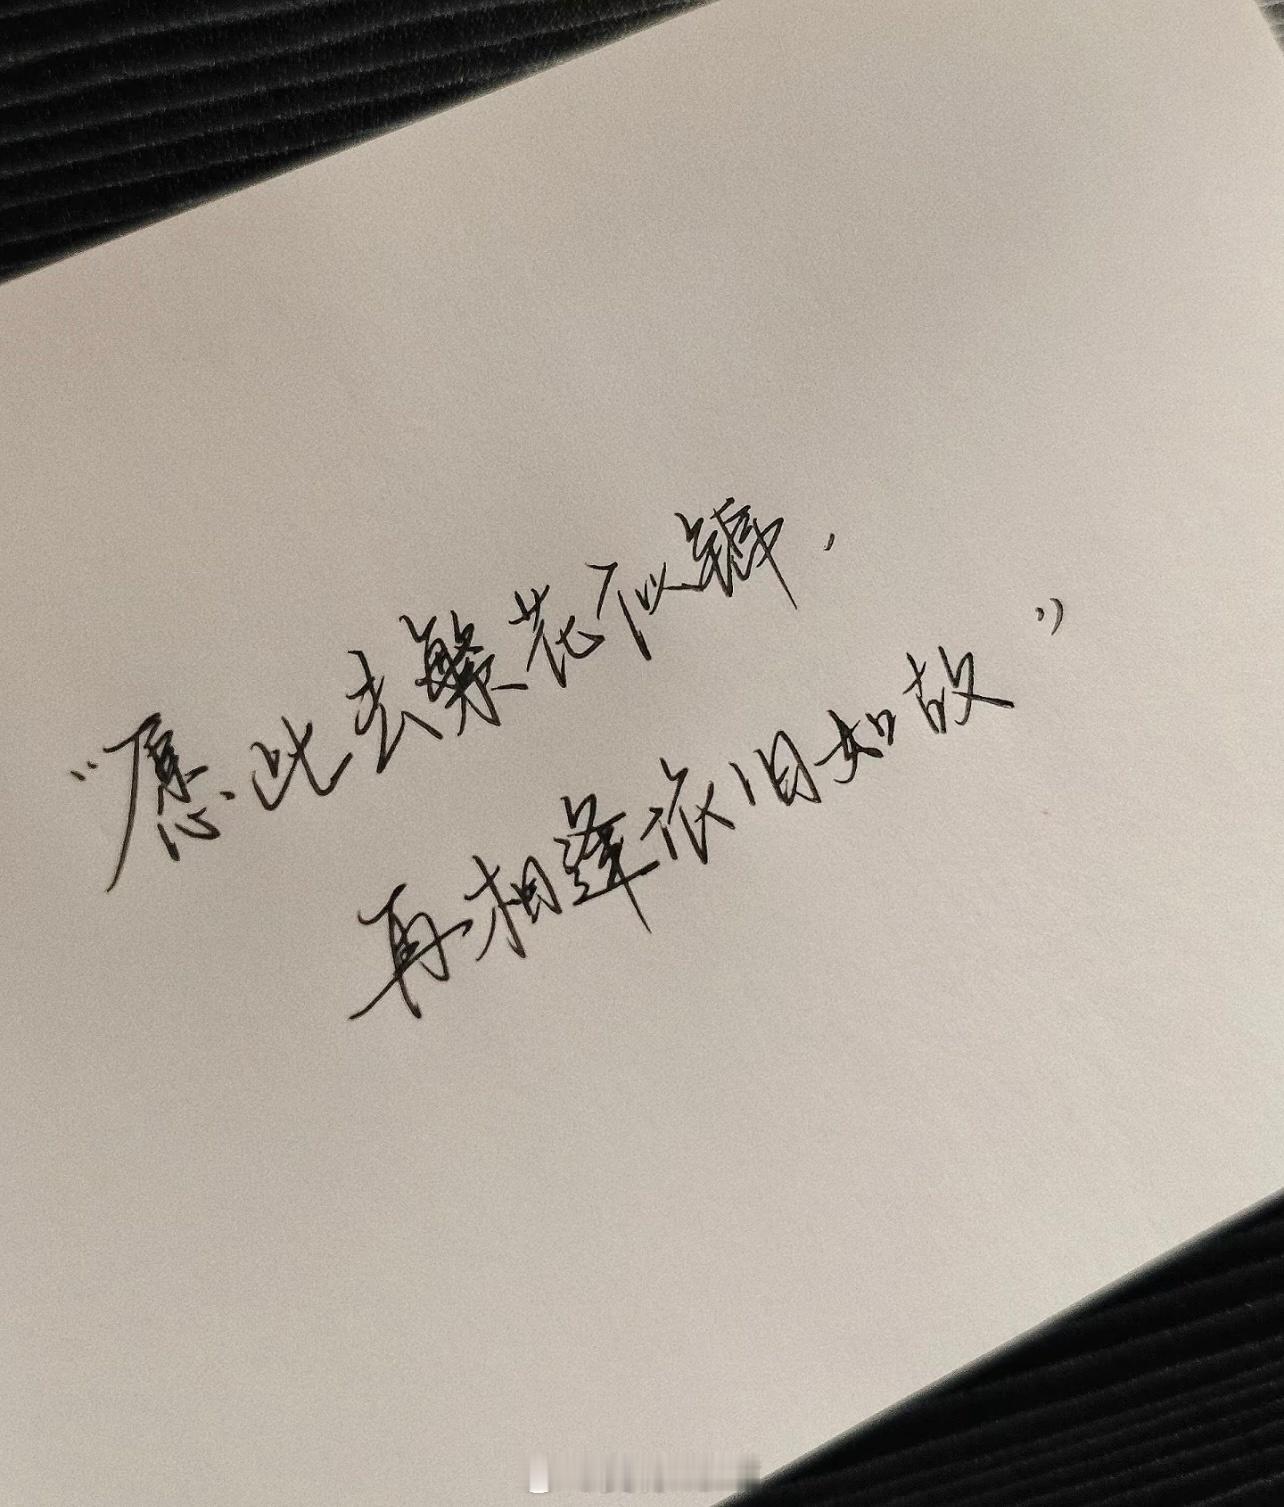 “愿此去繁花似锦，
再相逢依旧如故”